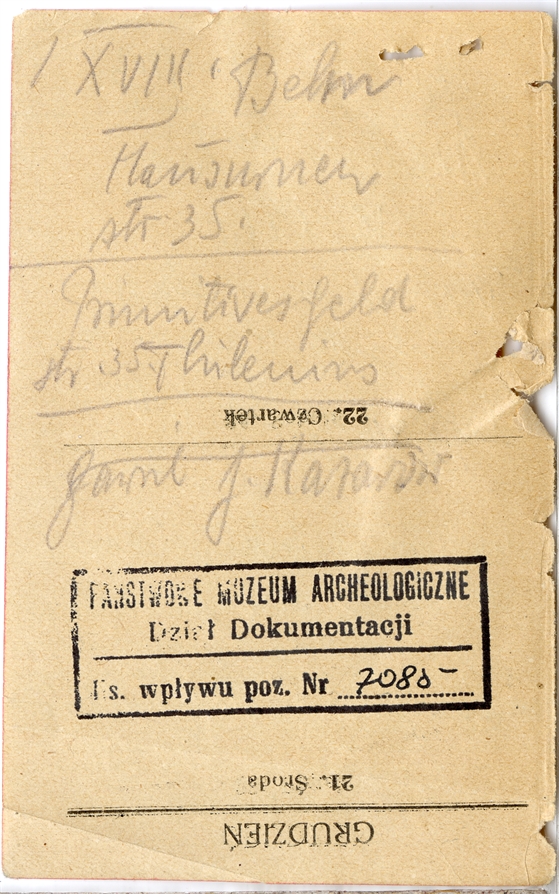 XVIII Behn
Hausurnen
str 35.
Primitivesgeld
str 35 Thilenius
22. Czwartek
PAŃSTWOWE MUZEUM ARCHEOLOGICZNE
Dział Dokumentacji
Ks. wpływu poz. Nr 7085
21. Środa
GRUDZIEŃ